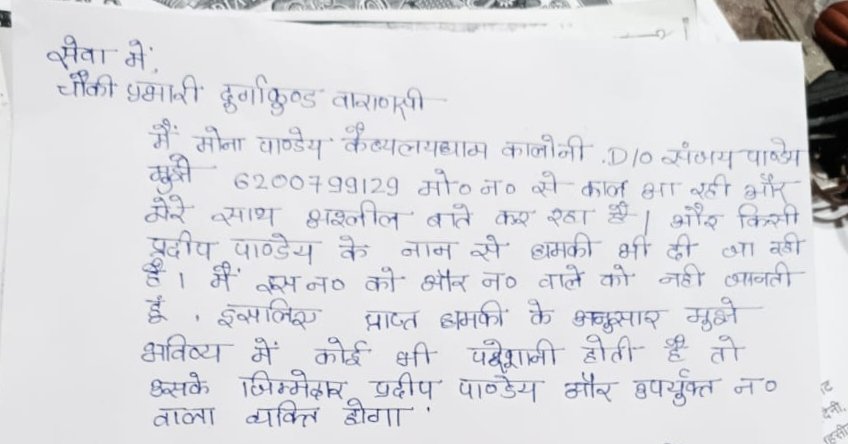 सेवा में,
चौकी प्रभारी दुर्गाकुण्ड वाराणसी
मैं मोना पाण्डेय कैव्यलयधाम कालोनी .D/O संजय पाण्डेय
मुझे 6200799129 मो० न० से काल आ रही और
मेरे साथ अश्लील बाते कर रहा है। और किसी
प्रदीप पाण्डेय के नाम से धमकी भी दी जा रही
है। मैं इस न० को और न० वाले को नही जानती
हूं . इसलिए प्राप्त धमकी के अनुसार मुझे
भविष्य में कोई भी परेशानी होती है तो
उसके जिम्मेदार प्रदीप पाण्डेय और उपर्युक्त न०
वाला व्यक्ति होगा